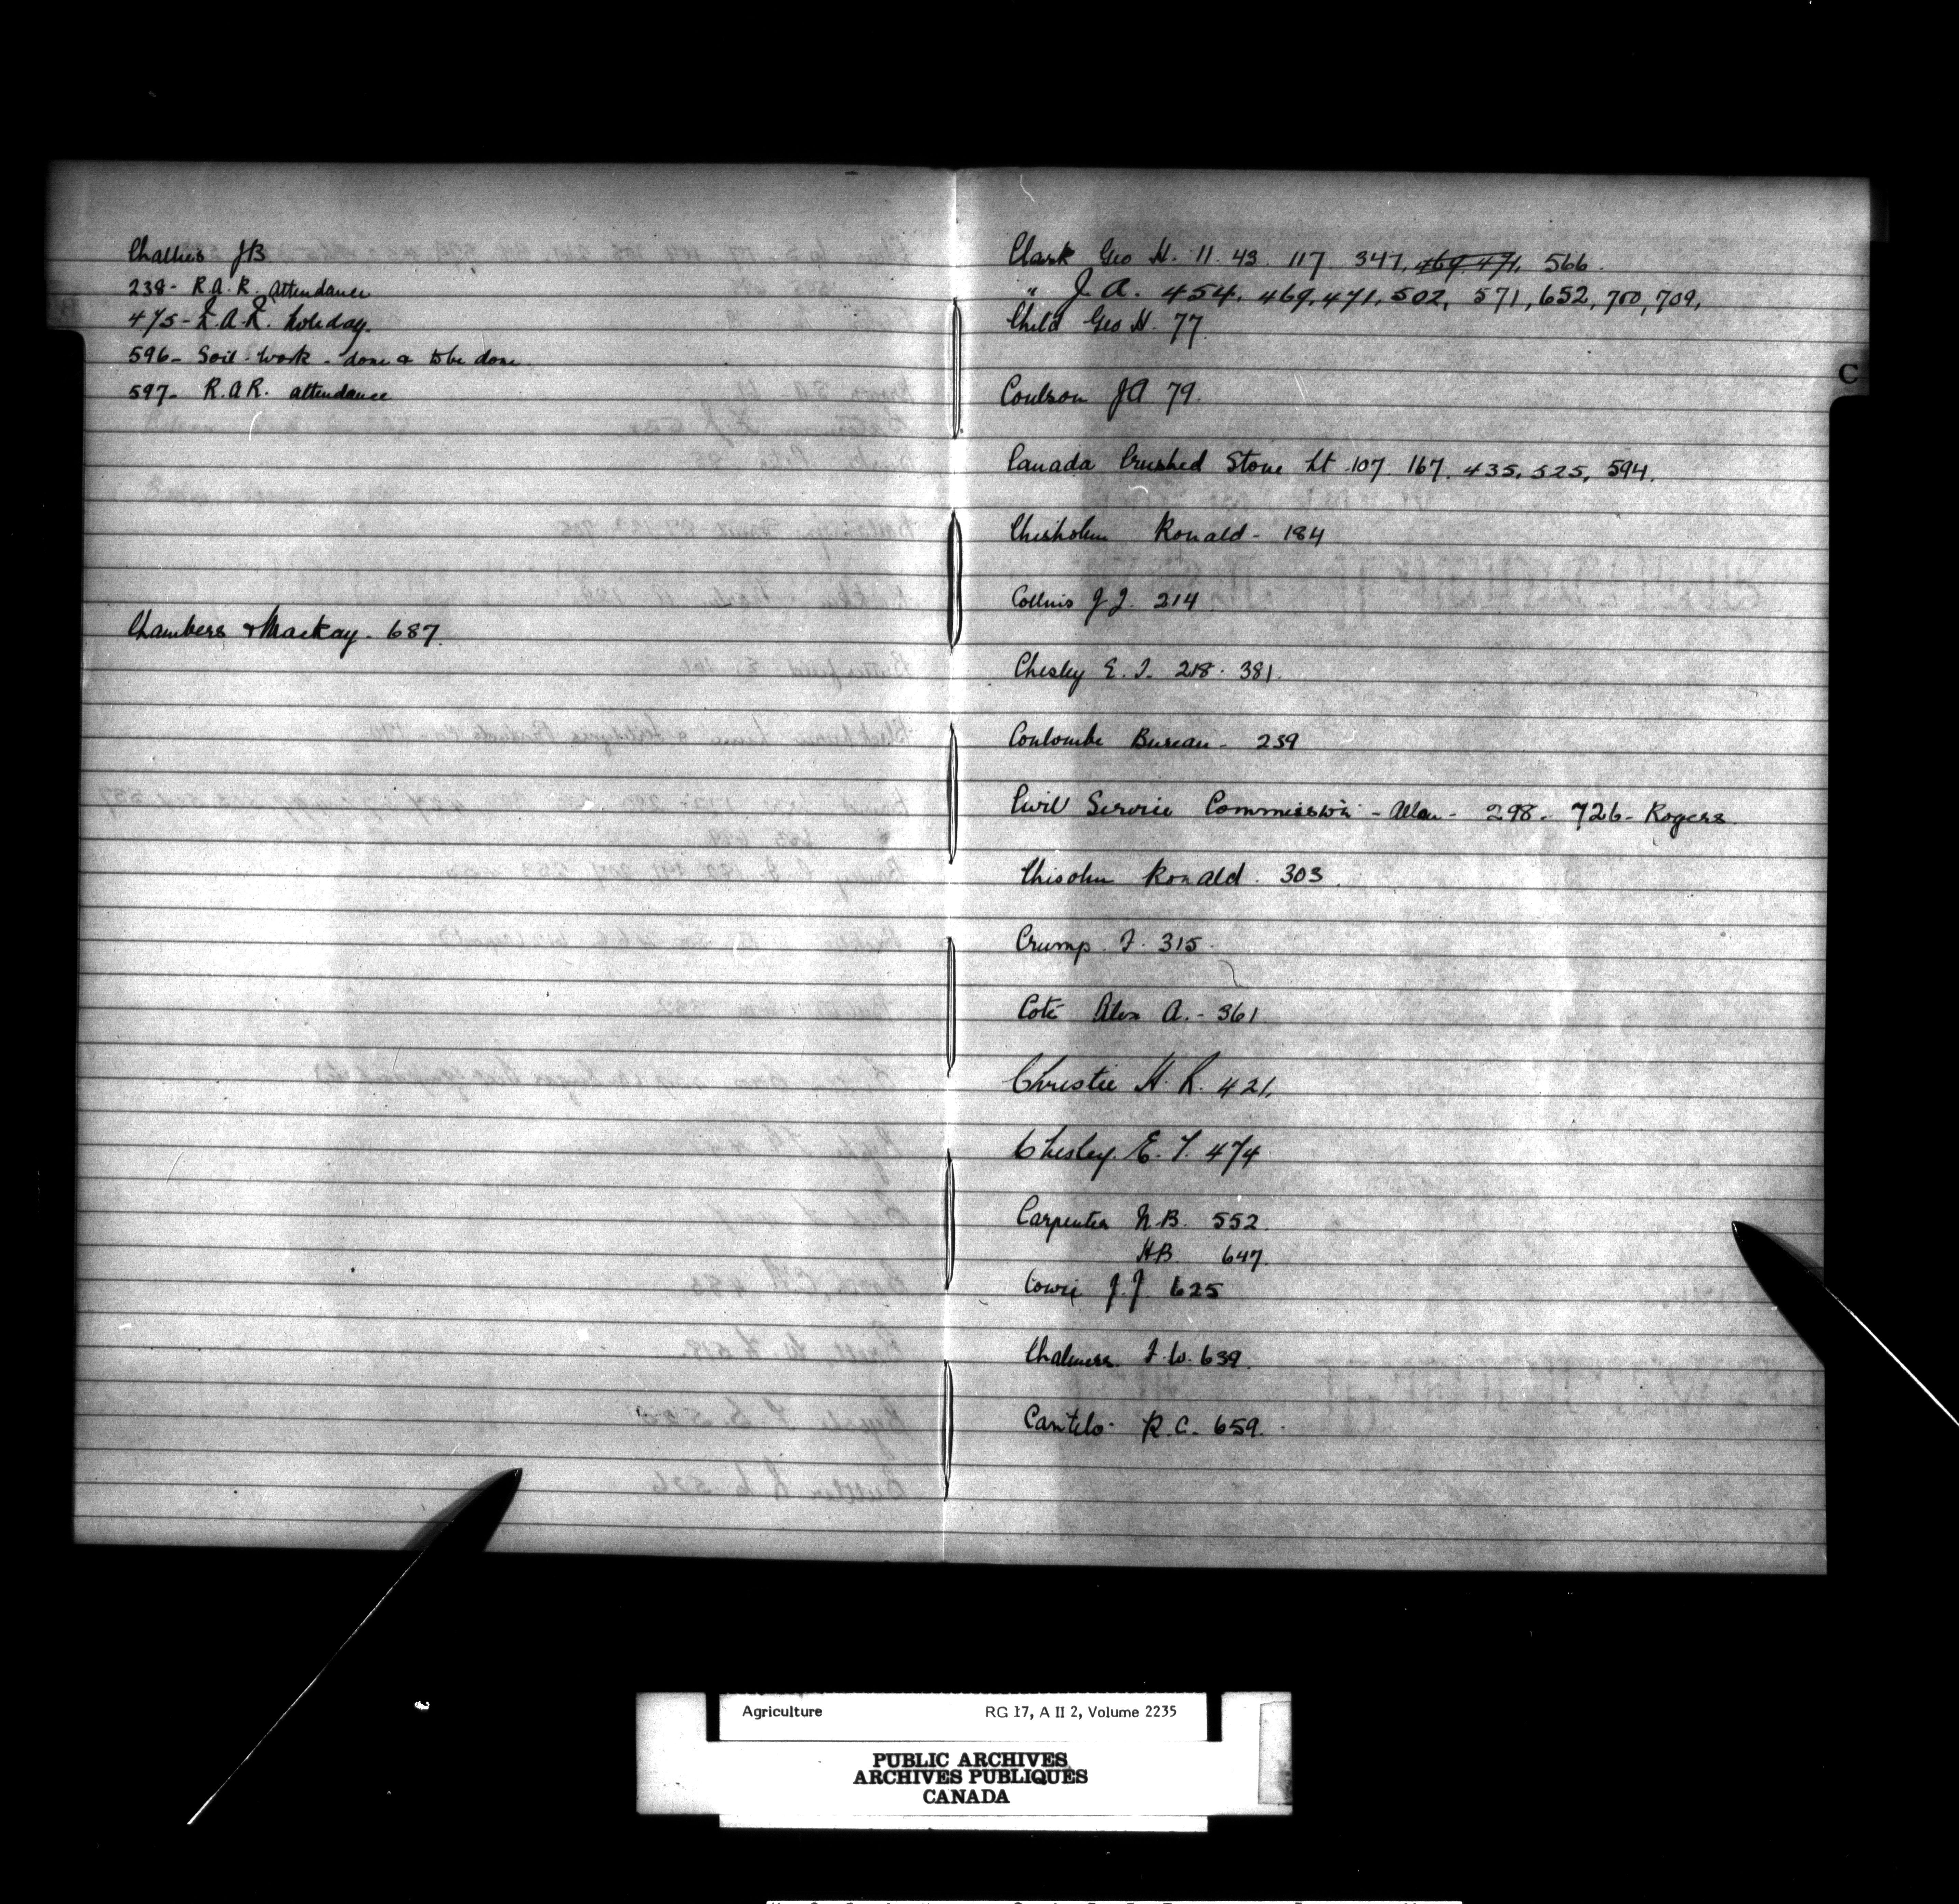 Challies JB
238- R.A.R. Attendance
475- R.A.R. holiday.
596- Soil-work - done & to be done
597- R.A.R. attendance
Chambers & Mackay - 687.
Clark Geo H. 11. 43. 117. 347, 469. 471, 566.
" J. A. 454, 469, 471, 502, 571, 652, 700, 709,
Child Geo H. 77.
Coulson JA 79.
Canada Crushed Stone Lt 107. 167. 435, 525, 594.
Chisholm Ronald - 184
Collins J J. 214
Chesley E. T. 218. 381.
Coulombe Bureau - 239
Civil Service Commission - Allan - 298 - 726 - Rogers
Chisolm Ronald. 303.
Crump F. 315.
Coté Alex A. - 361
Christie H. R. 421.
Chesley. E. T. 474
Carpenter N.B. 552.
HB 647.
Cowie J.J. 625
Chalmers. F. W. 639.
Cantelo - R. C. 659.
C
Agriculture RG 17, A II 2, Volume 2235
PUBLIC ARCHIVES
ARCHIVES PUBLIQUES
CANADA